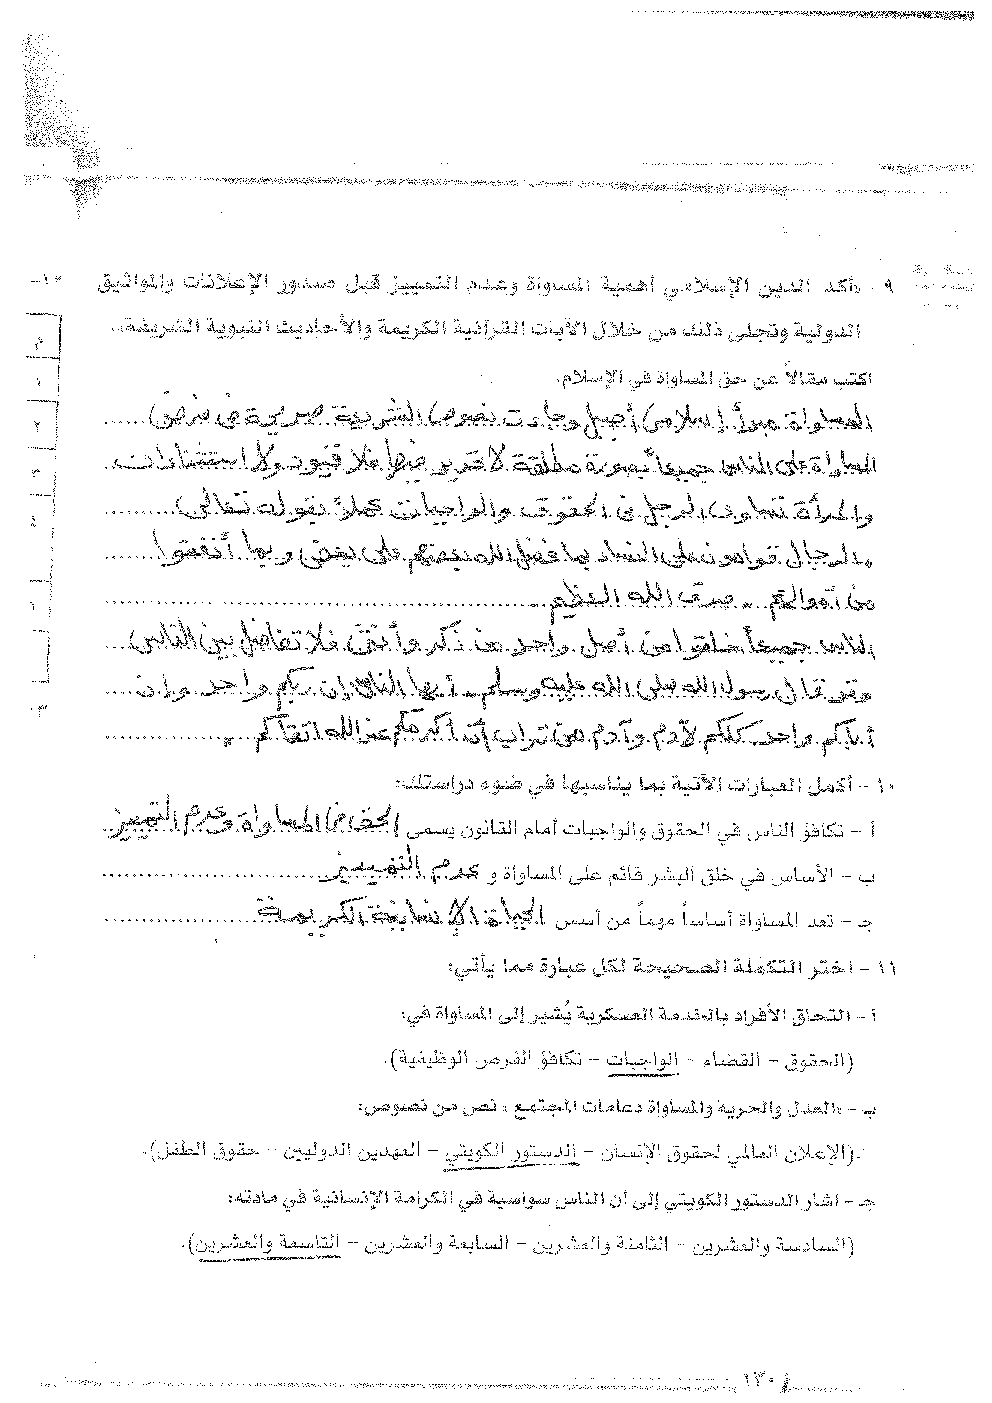 ٩ - «أكد الدين الإسلامي أهمية المساواة وعدم التمييز قبل صدور الإعلانات والمواثيق
الدولية وتجلى ذلك من خلال الآيات القرآنية الكريمة والأحاديث النبوية الشريفة».
اكتب مقالاً عن حق المساواة في الإسلام.
المساواة مبدأ إسلامي أصيل وجاءت نصوص الشريعة صريحة في فرض
المساواة على الناس جميعاً بصورة مطلقة لا فيها فلا قيود ولا استثناءات
والمرأة تساوي الرجل في الحقوق والواجبات عملاً بقوله تعالى
" الرجال قوامون على النساء بما فضل الله بعضهم على بعض وبما أنفقوا
من أموالهم " صدق الله العظيم
الناس جميعاً خلقوا من أصل واحد من ذكر وأنثى فلا تفاضل بين الناس
وقد قال رسول الله صلى الله عليه وسلم " أيها الناس إن ربكم واحد وإن
أباكم واحد كلكم لآدم وآدم من تراب إن أكرمكم عند الله اتقاكم "
١٠ - أكمل العبارات الآتية بما يناسبها في ضوء دراستك:
أ - تكافؤ الناس في الحقوق والواجبات أمام القانون يسمى الحق في المساواة وعدم التمييز
ب - الأساس في خلق البشر قائم على المساواة و عدم التمييز
جـ - تعد المساواة أساساً مهماً من أسس الحياة الإنسانية الكريمة
١١ - اختر التكملة الصحيحة لكل عبارة مما يأتي:
أ - التحاق الأفراد بالخدمة العسكرية يُشير إلى المساواة في:
(الحقوق - القضاء - الواجبات - تكافؤ الفرص الوظيفية).
ب - «العدل والحرية والمساواة دعامات المجتمع» نص من نصوص:
(الإعلان العالمي لحقوق الإنسان - الدستور الكويتي - العهدين الدوليين - حقوق الطفل).
جـ - اشار الدستور الكويتي إلى أن الناس سواسية في الكرامة الإنسانية في مادته:
(السادسة والعشرين - الثامنة والعشرين - السابعة والعشرين - التاسعة والعشرين).
١٣٠
١٠-
م
١
٢
٣
٤